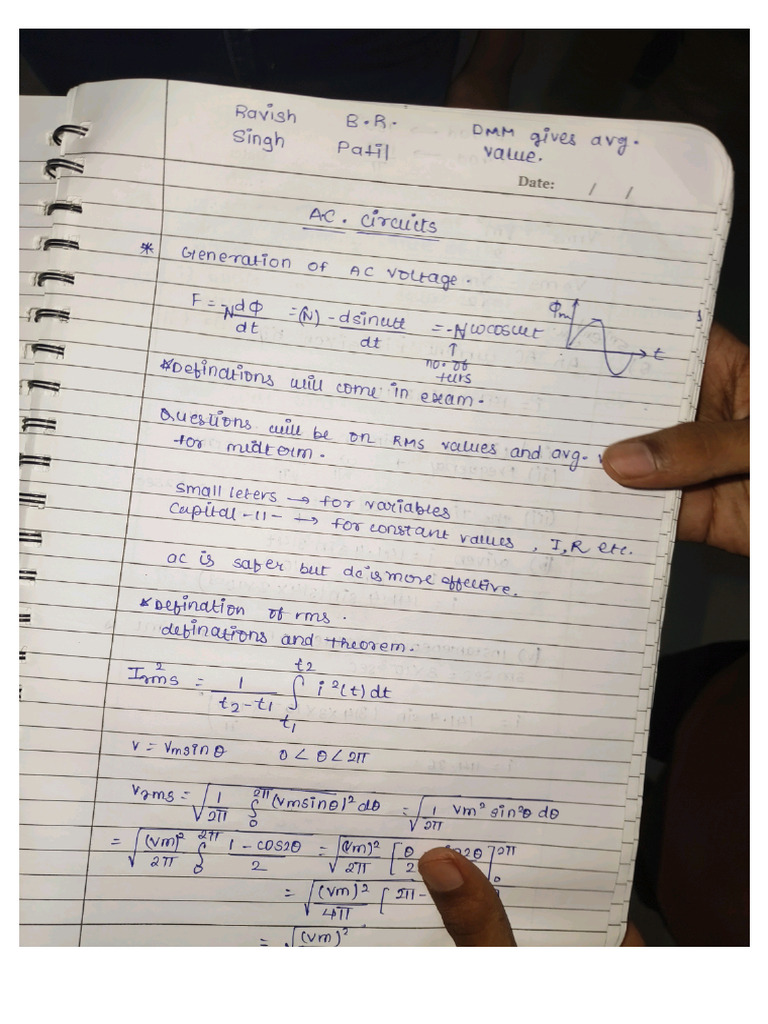 Ravish B.R. DMM gives avg.
Singh Patil value.
Date: / /
AC. circuits
* Generation of AC voltage.
F = -N dΦ/dt = (N) - dsinωt/dt = -Nωcosωt
↑
no. of
turs
Φm
t
*Definations will come in exam.
Questions will be on RMS values and avg.
for midterm.
small leters → for variables
Capital -11- → for constant values, I, R etc.
ac is safer but dc is more effective.
*Defination of rms.
definations and theorem.
I²rms = 1/(t2-t1) ∫t1 t2 i²(t)dt
v = vmsinθ 0<θ<2π
vrms = √(1/2π ∫0 2π (vmsinθ)² dθ = √(1/2π vm² sin²θ dθ
= √((vm)²/2π ∫0 2π (1-cos2θ)/2 = √((vm)²/2π [θ/2 2θ]0 2π
= √((vm)²/4π [2π-
= √(vm)²